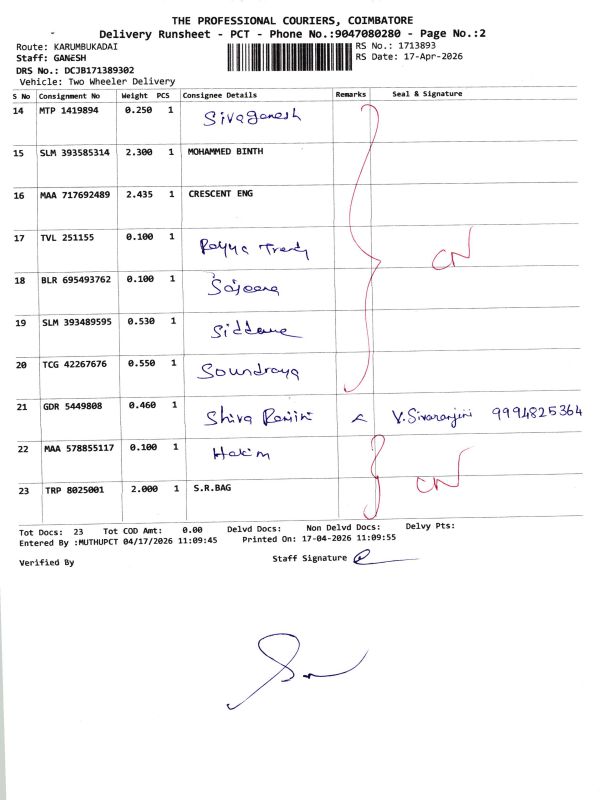 THE PROFESSIONAL COURIERS, COIMBATORE
Delivery Runsheet - PCT - Phone No.:9047080280 - Page No.:2
Route: KARUMBUKADAI RS No.: 1713893
Staff: GANESH RS Date: 17-Apr-2026
DRS No.: DCJB171389302
Vehicle: Two Wheeler Delivery
S No Consignment No Weight PCS Consignee Details Remarks Seal & Signature
14 MTP 1419894 0.250 1 Sivaganesh
15 SLM 393585314 2.300 1 MOHAMMED BINTH
16 MAA 717692489 2.435 1 CRESCENT ENG
17 TVL 251155 0.100 1 CN
18 BLR 695493762 0.100 1 Sajeena
19 SLM 393489595 0.530 1
20 TCG 42267676 0.550 1 Soundraya
21 GDR 5449808 0.460 1 Shiva Ranjini V.Sivaranjini 9994825364
22 MAA 578855117 0.100 1 Hakim
23 TRP 8025001 2.000 1 S.R.BAG CN
Tot Docs: 23 Tot COD Amt: 0.00 Delvd Docs: Non Delvd Docs: Delvy Pts:
Entered By :MUTHUPCT 04/17/2026 11:09:45 Printed On: 17-04-2026 11:09:55
Verified By Staff Signature